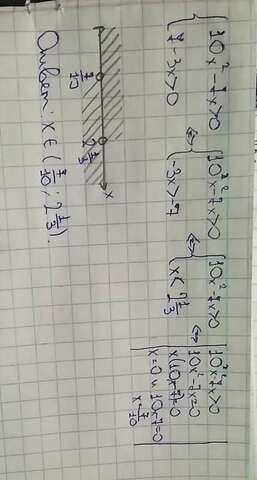 {10x²-7x>0 ⇔ {10x²-7x>0 ⇔ {10x²-7x>0 ⇔
7-3x>0 -3x>-7 x<2 1/3
10x²-7x>0
10x²-7x=0
x(10x-7)=0
x=0 и 10x-7=0
x=7/10
7/10 2 1/3 x
Ответ: x∈(7/10; 2 1/3).